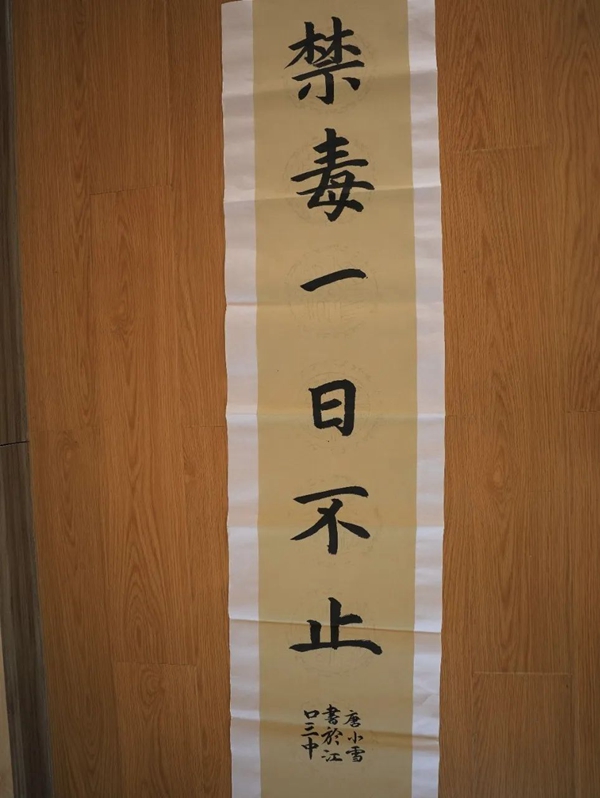 禁毒一日不止
唐小雪
書於江
口三中